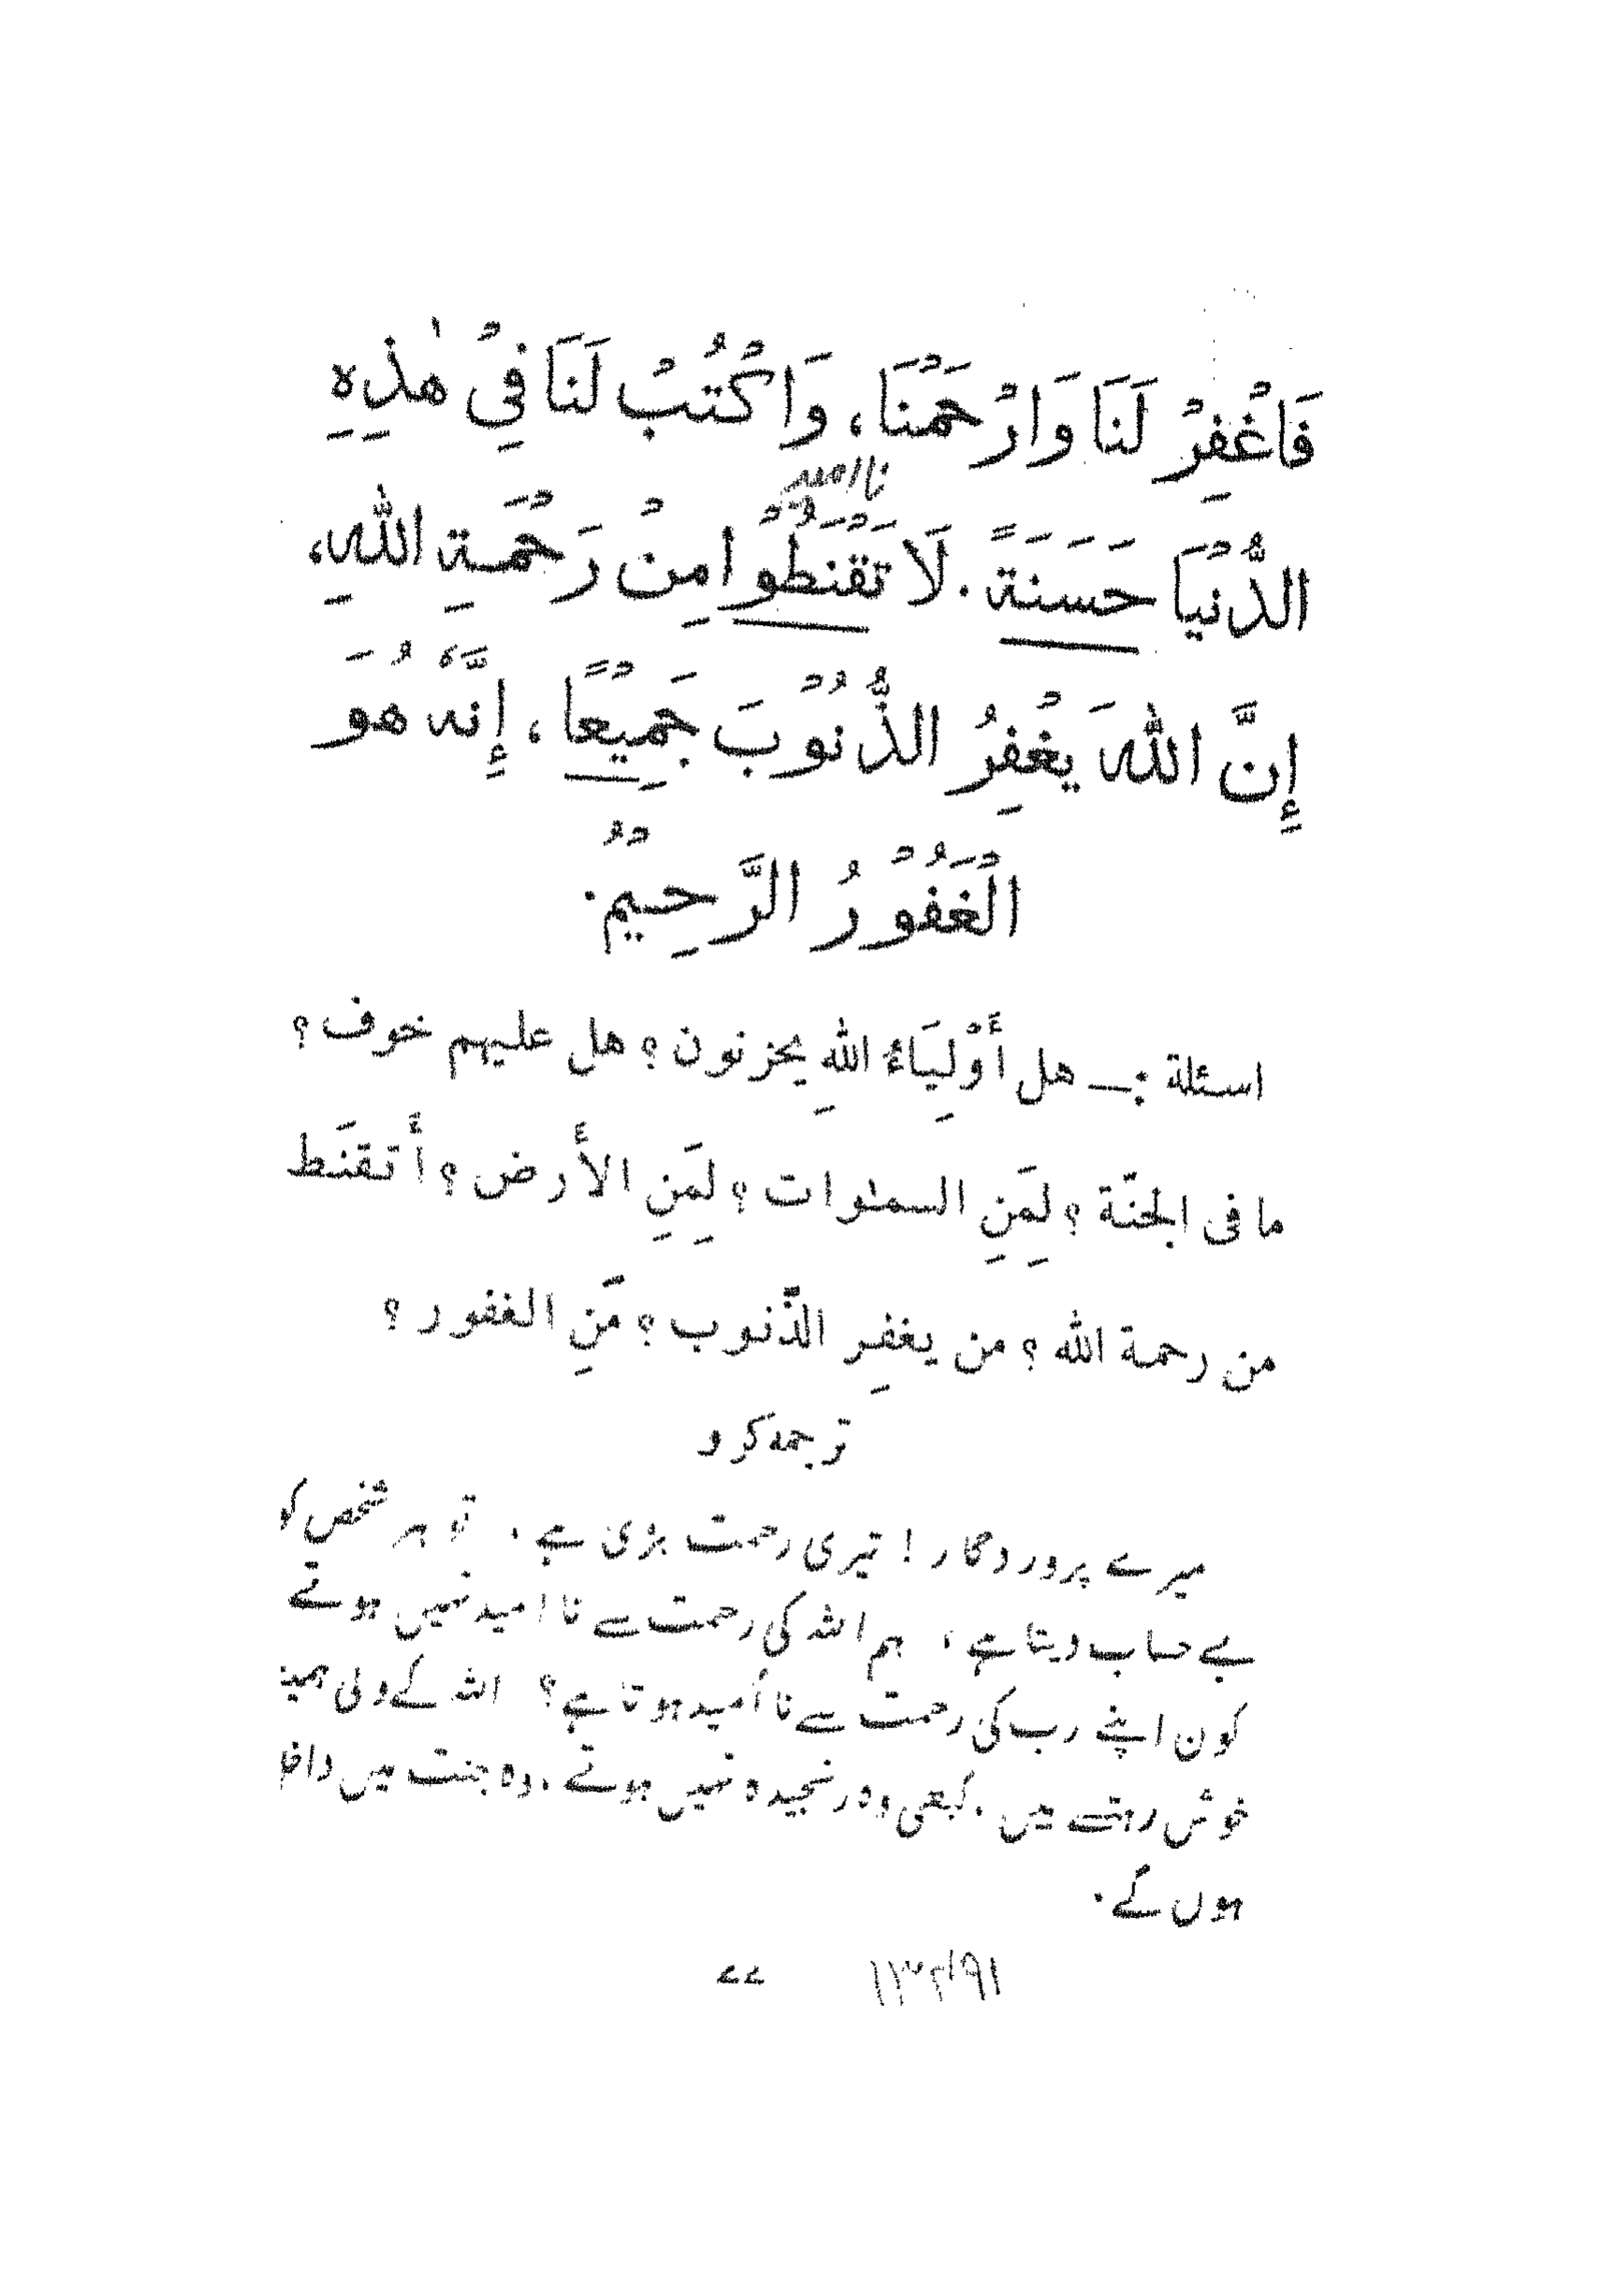 فَاغْفِرْ لَنَا وَارْحَمْنَا، وَاكْتُبْ لَنَا فِيْ هٰذِهِ
نا امید
الدُّنْيَا حَسَنَةً. لَا تَقْنَطُوْا مِنْ رَحْمَةِ اللهِ،
إِنَّ اللهَ يَغْفِرُ الذُّنُوْبَ جَمِيْعًا، إِنَّهٗ هُوَ
الْغَفُوْرُ الرَّحِيْمُ.
اسئلة :— هل أَوْلِيَاءُ اللهِ يحزنون؟ هل عليهم خوف؟
ما فى الجنّة؟ لِمَنِ السمٰوات؟ لِمَنِ الأرض؟ أتقنَط
من رحمة الله؟ من يغفِر الذّنوب؟ مَنِ الغفور؟
ترجمہ کرو
میرے پروردگار! تیری رحمت بڑی ہے، تو ہر شخص کو
بے حساب دیتا ہے، ہم اللہ کی رحمت سے نا امید نہیں ہوتے
کون اپنے رب کی رحمت سے نا اُمید ہوتا ہے؟ اللہ کے ولی
خوش رہتے ہیں. کبھی وہ رنجیدہ نہیں ہوتے. وہ جنت میں
ہوں گے.